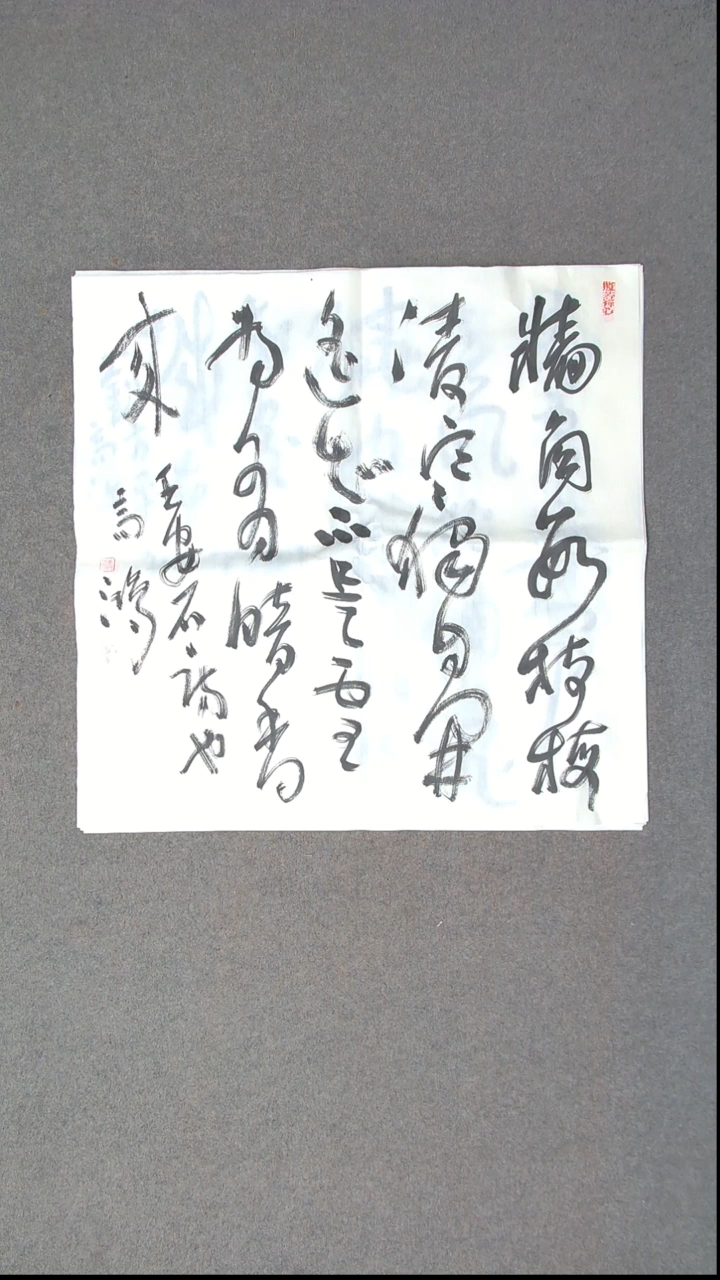 牆角數枝梅
凌寒獨自開
遙知不是雪
為有暗香
來
王安石詩也
高鴻